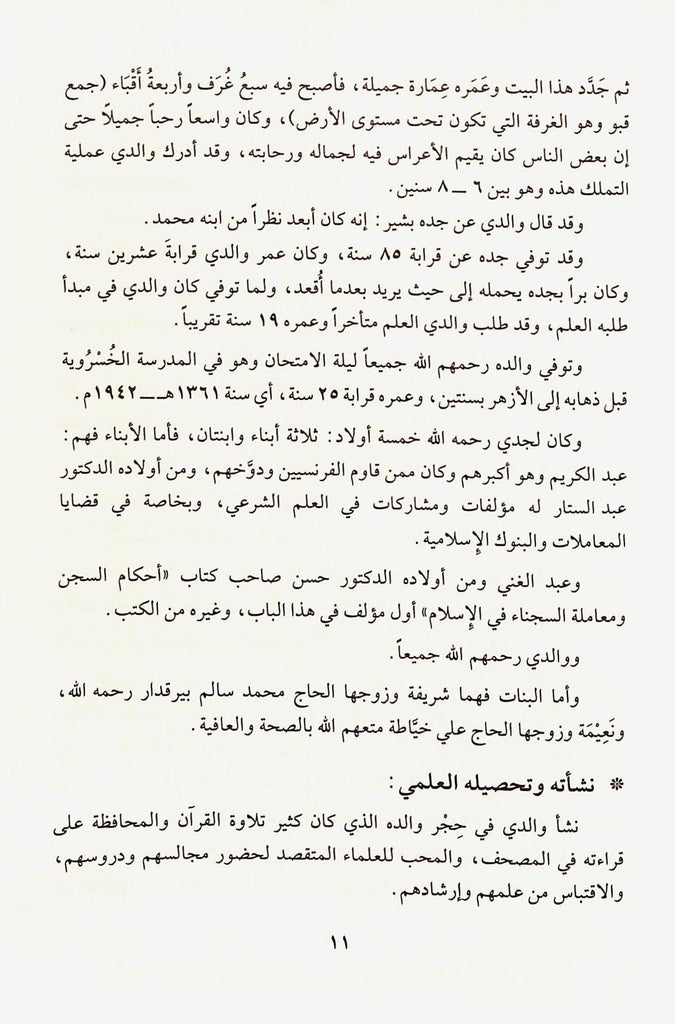 ثم جَدَّد هذا البيت وعَمَره عِمَارة جميلة، فأصبح فيه سبعُ غُرَف وأربعةُ أَقْبَاء (جمع
قبو وهو الغرفة التي تكون تحت مستوى الأرض)، وكان واسعاً رحباً جميلاً حتى
إن بعض الناس كان يقيم الأعراس فيه لجماله ورحابته، وقد أدرك والدي عملية
التملك هذه وهو بين ٦ ــ ٨ سنين.
وقد قال والدي عن جده بشير: إنه كان أبعد نظراً من ابنه محمد.
وقد توفي جده عن قرابة ٨٥ سنة، وكان عمر والدي قرابةَ عشرين سنة،
وكان براً بجده يحمله إلى حيث يريد بعدما أُقعد، ولما توفي كان والدي في مبدأ
طلبه العلم، وقد طلب والدي العلم متأخراً وعمره ١٩ سنة تقريباً.
وتوفي والده رحمهم الله جميعاً ليلة الامتحان وهو في المدرسة الخُسْرُوية
قبل ذهابه إلى الأزهر بسنتين، وعمره قرابة ٢٥ سنة، أي سنة ١٣٦١هـــ١٩٤٢م.
وكان لجدي رحمه الله خمسة أولاد: ثلاثة أبناء وابنتان، فأما الأبناء فهم:
عبد الكريم وهو أكبرهم وكان ممن قاوم الفرنسيين ودوَّخهم، ومن أولاده الدكتور
عبد الستار له مؤلفات ومشاركات في العلم الشرعي، وبخاصة في قضايا
المعاملات والبنوك الإسلامية.
وعبد الغني ومن أولاده الدكتور حسن صاحب كتاب «أحكام السجن
ومعاملة السجناء في الإسلام» أول مؤلف في هذا الباب، وغيره من الكتب.
ووالدي رحمهم الله جميعاً.
وأما البنات فهما شريفة وزوجها الحاج محمد سالم بيرقدار رحمه الله،
ونَعِيْمَة وزوجها الحاج علي خيَّاطة متعهم الله بالصحة والعافية.
* نشأته وتحصيله العلمي:
نشأ والدي في حِجْر والده الذي كان كثير تلاوة القرآن والمحافظة على
قراءته في المصحف، والمحب للعلماء المتقصد لحضور مجالسهم ودروسهم،
والاقتباس من علمهم وإرشادهم.
١١